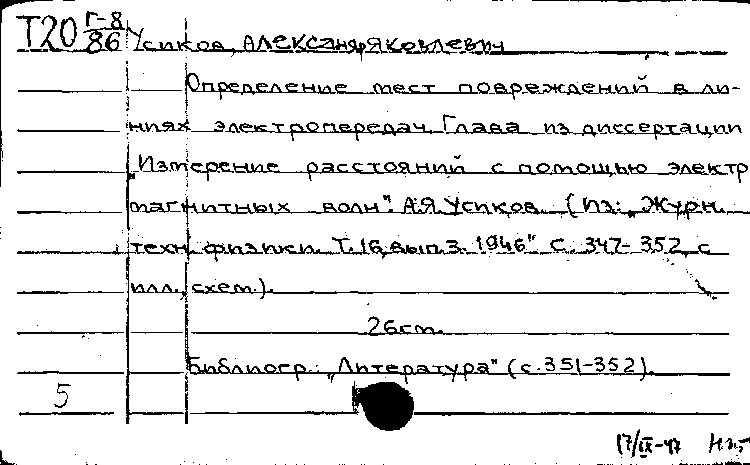 Т20 Г-8/86 Усиков, Александр Яковлевич
Определение мест повреждений в ли-
ниях электропередач. Глава из диссертации
„Измерение расстояний с помощью электр
магнитных волн". А.Я. Усиков. (Из: „Журн.
техн. физики. Т. 16, вып. 3. 1946" С. 347-352, с
илл., схем.).
26 см.
Библиогр.: „Литература" (с. 351-352).
5
17/IX-47